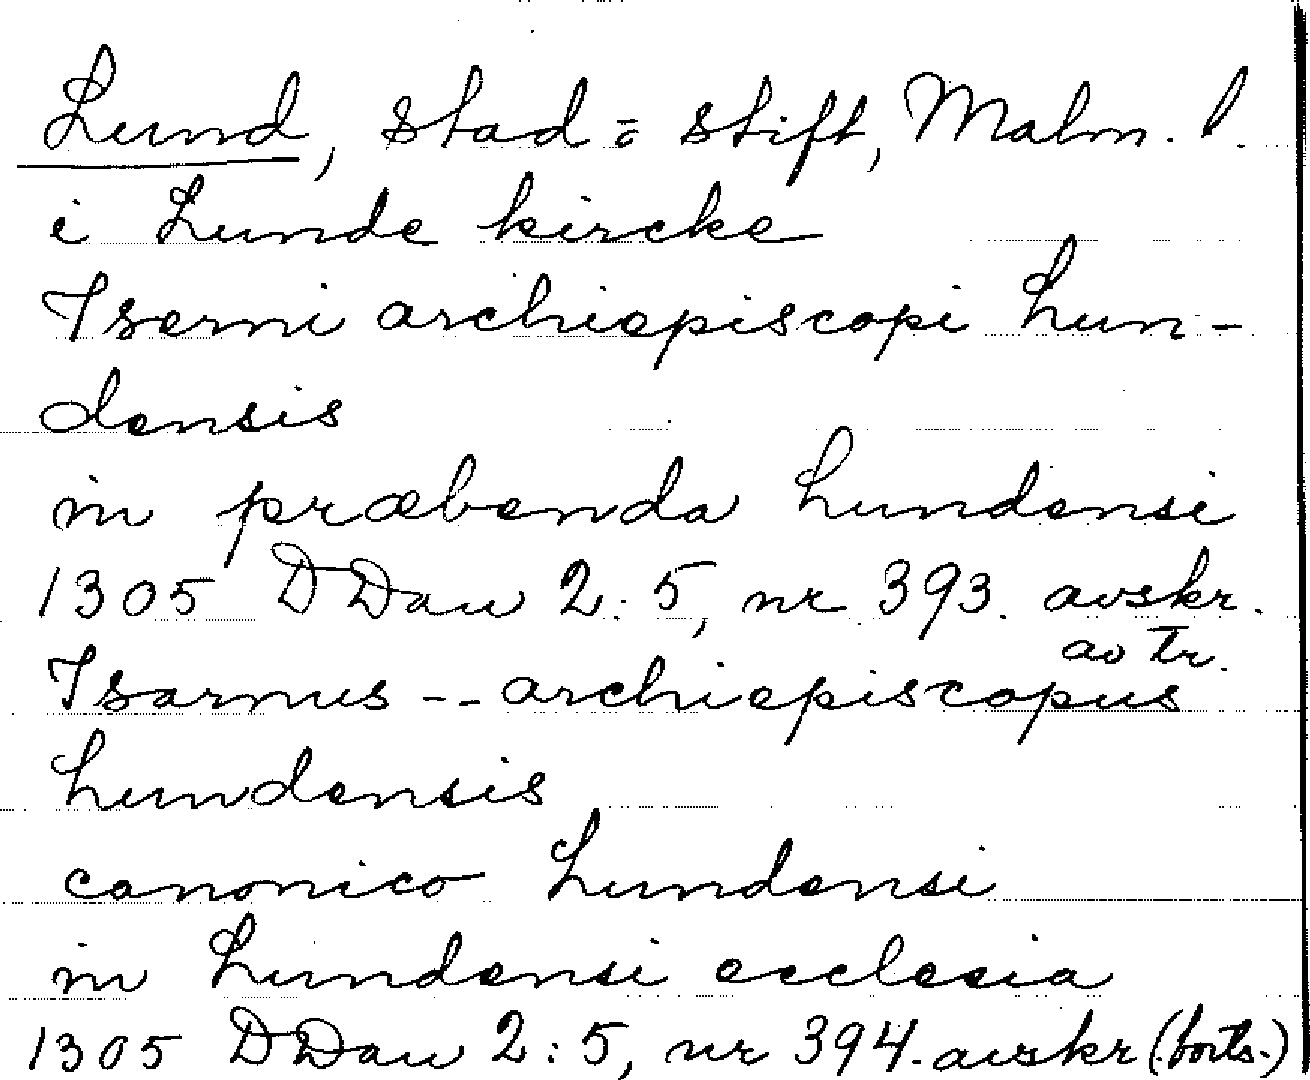 Lund, stad = stift, Malm. l.
i Lunde kircke
Iserni archiepiscopi Lun-
densis
in præbenda Lundensi
1305 DDan 2:5, nr 393. avskr.
av tr.
Isarnus -- archiepiscopus
Lundensis
canonico Lundensi
in Lundensi ecclesia
1305 DDan 2:5, nr 394. avskr (forts.)